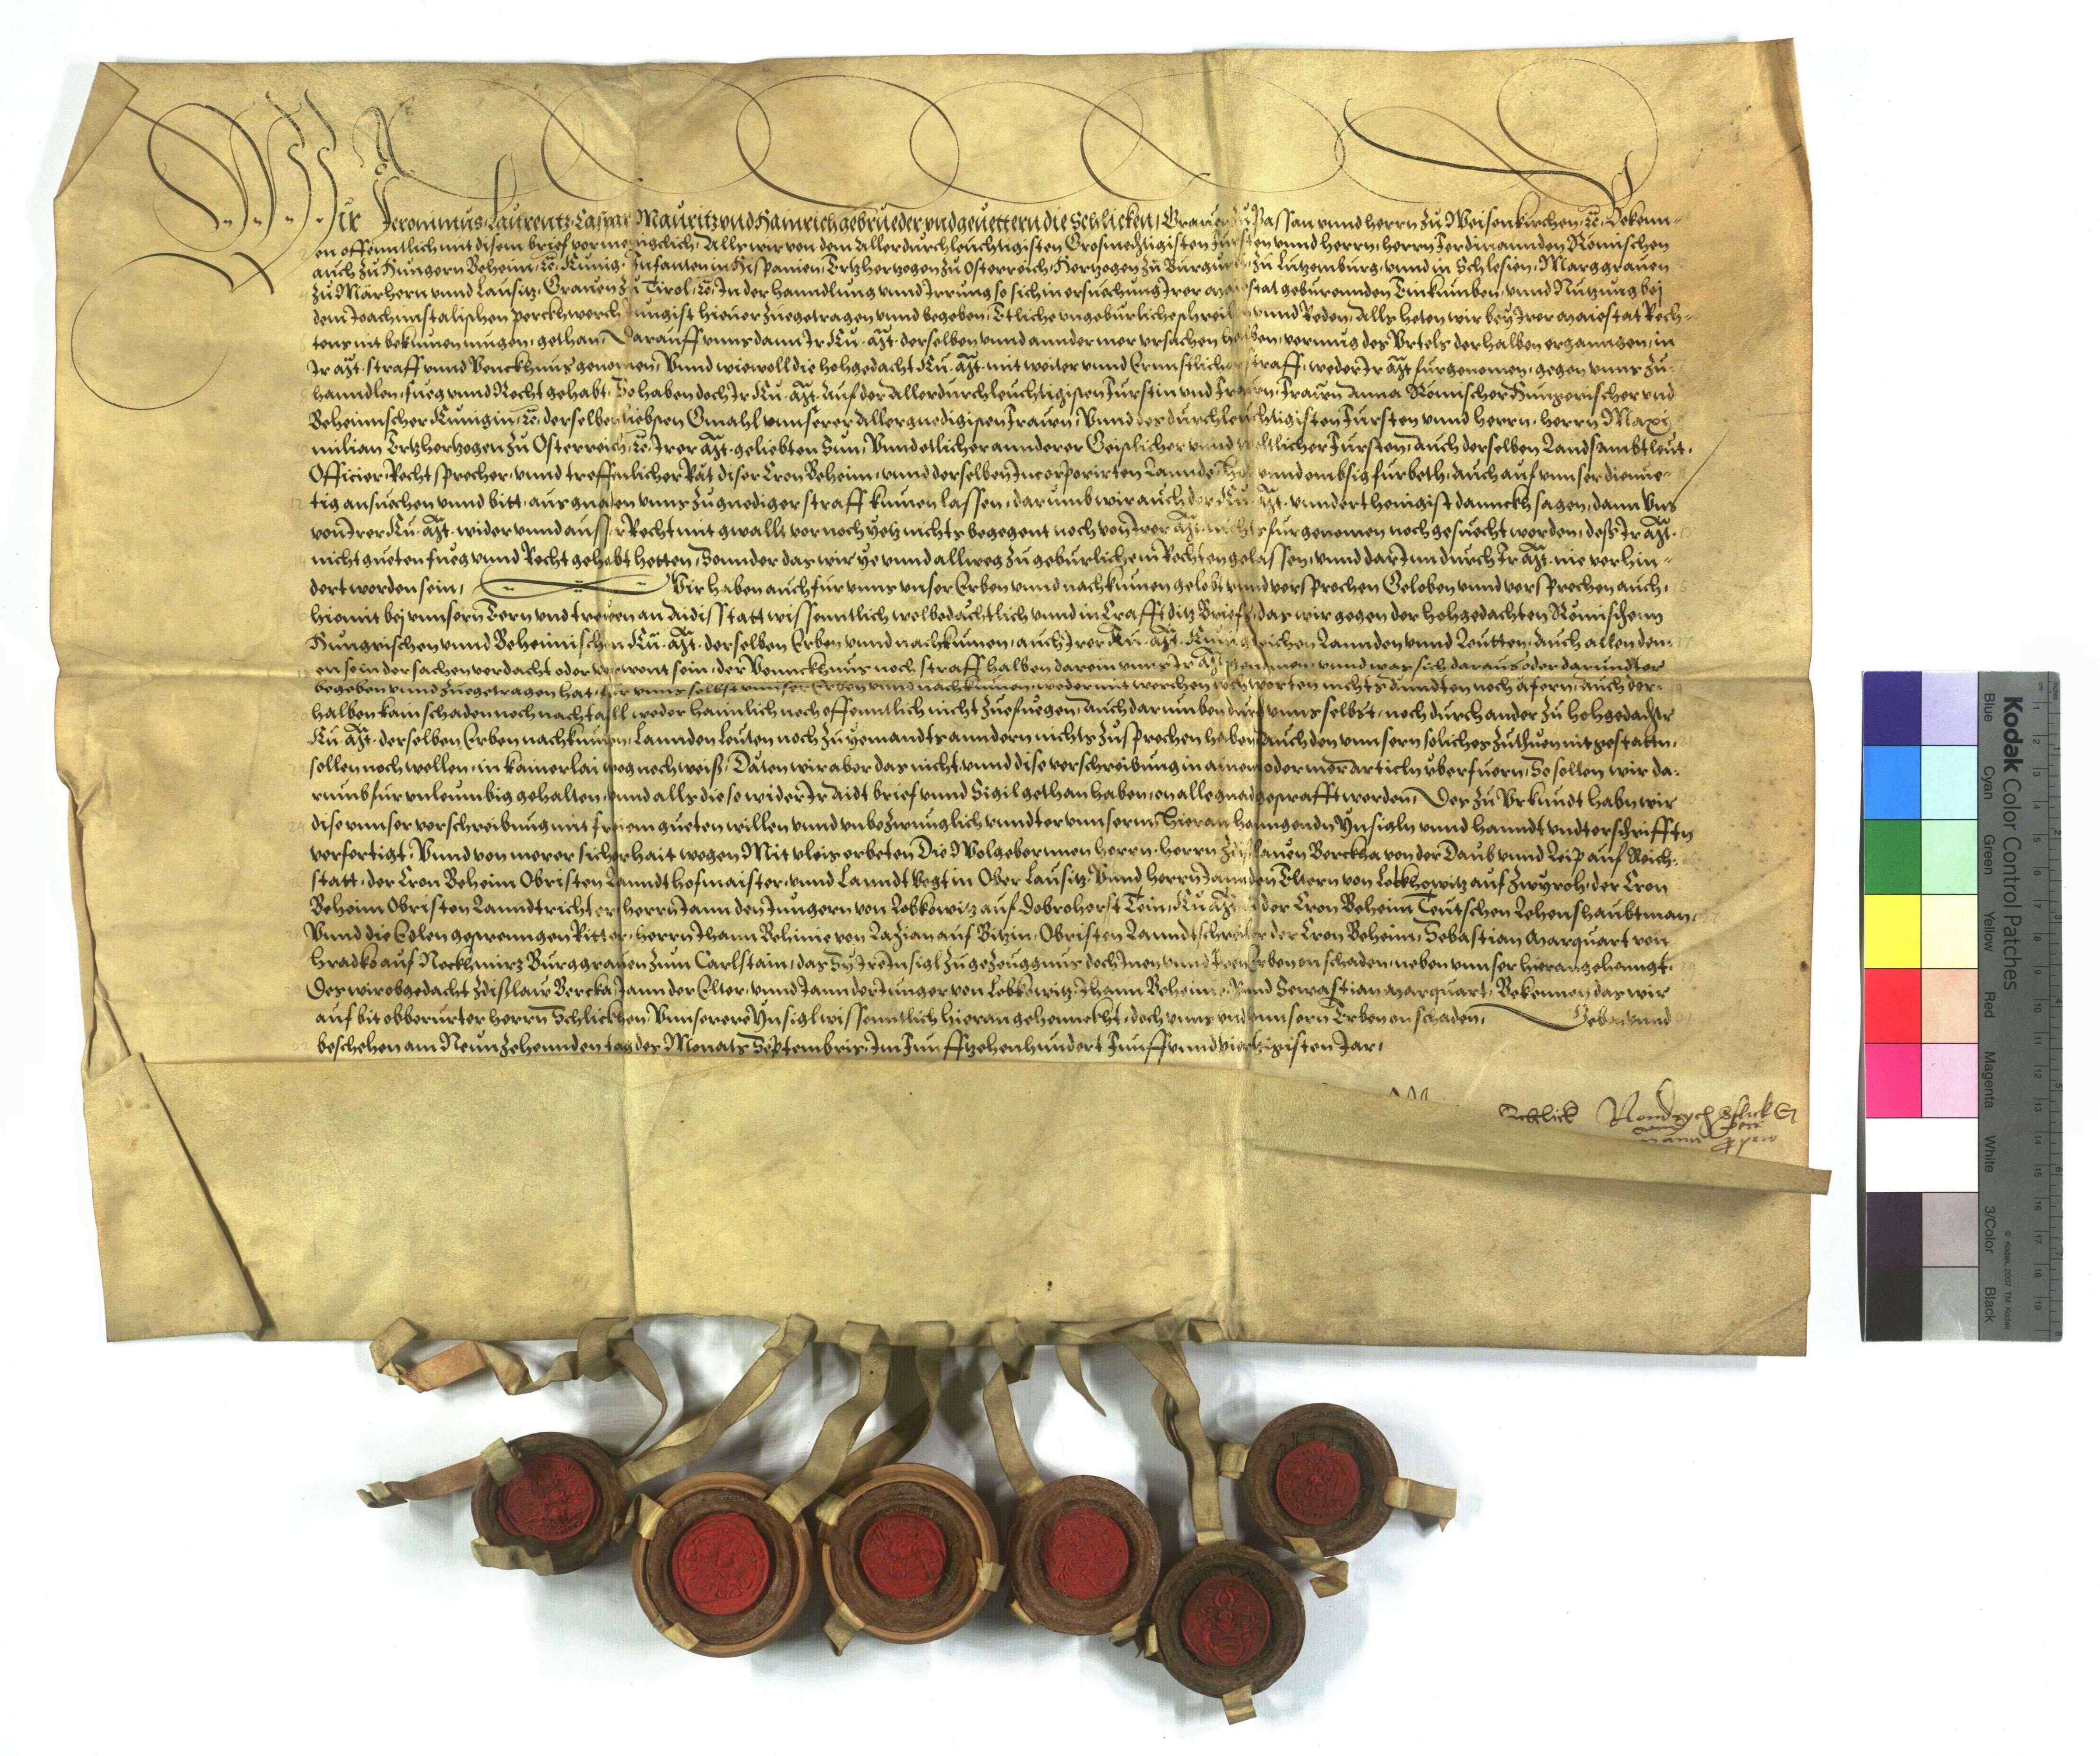 Wir Jeronimus, Laurentz, Caspar, Mauritz vnd Hainrich gebrueder vnd geuettern die Schlicken, Grauen zu Passan vnnd herrn zu Weisenkirchen, ꝛc. Bekenn-
en offenntlich mit disem brief vormenigclich, Alls wir von dem Allerdurchleuchtigisten Grosmechtigisten Fursten vnnd herrn, herrn Ferdinannden Römischen
auch zu Hungern Beheim, ꝛc. Künig, Infanten in Hispanien, Ertzhertzogen zu Osterreich, Hertzogen zu Burgundi, zu Lutzemburg, vnnd in Schlesien, Marggrauen
zu Märhern vnnd Lausitz, Grauen zu Tirol, ꝛc. In der hanndlung vnnd Irrung so sich in ersuechung Irer Maiestat geburennden Einkumben, vnnd Nutzung bej
dem Joachimstalischen perckhwerch Jungist hieuor zuegetragen vnnd begeben, Etliche vngeburliche schreiben vnnd Reden, Alls heten wir bey Irer Maiestat Rech-
tens nit bekumen mugen, gethan, Darauff vnns dann Ir Ku. Mt. derselben vnnd annder mer vrsachen halben, vermug des Vrtels derhalben erganngen, in
Ir Mt. straff vnnd Vennckhnus genomen, Vnnd wiewoll die hohgedacht Ku. Mt. mit weiter vnnd Ernnstlicher straff, weder Ir Mt. furgenomen, gegen vnns zu-
hanndlen, fueg vnnd Recht gehabt, So haben doch Ir Ku. Mt. auf der Allerdurchleuchtigisten Furstin vnd Frauen, Frauen Anna Römischer Hungerischer vnd
Behemischer Kunigin, ꝛc. derselben liebsten Gmahl vnnserer Allergnedigisten Frawen, Vnnd des durchleuchtigisten Fursten vnnd herrn, herrn Maxi-
milian Ertzhertzogen zu Osterreich, ꝛc. Irer Mt. geliebten Sun, Vnnd etlicher annderer Geistlicher vnnd weltlicher Fursten, auch derselben Landsambtleut,
Officier, Recht sprecher, vnnd treffenlicher Rät diser Cron Beheim, vnnd derselben Incorporirten Lannde vnnd embsig furbeth, Auch auf vnnser diemue-
tig ansuechen vnnd bitt, aus gnaden vnns zu gnediger straff kumen lassen, darumb wir auch der Ku. Mt. vnnderthenigist dannckh sagen, dann Vns
von Irer Ku. Mt. wider vnnd ausser Recht mit gwallt vor noch yetz nichts begegent noch von Irer Mt. nichts furgenomen noch gesuecht worden, deß Ir Mt.
nicht gueten fueg vnnd Recht gehabt hetten, Sonnder das wir ye vnnd allweg zu geburlichem Rechten gelassen, vnnd darInn durch Ir Mt. nie verhin-
dert worden sein, Wir haben auch fur vnns vnser Erben vnnd nachkumen gelobt vnnd versprochen Geloben vnnd versprechen auch,
hiemit bej vnnsern Eern vnd trewen an Aidisstatt wissenntlich wolbedachtlich vnnd in Crafft ditz Briefs, das wir gegen der hohgedachten Römischenn
Hungrischen vnnd Behemischen Ku. Mt. derselben Erben vnnd nachkumen, auch Irer Ku. Mt. Kunigreichen Lannden vnnd Leutten, Auch allen den-
en so in der sachen verdacht oder sein, der Vennckhnus noch straff halben darein vnns Ir Mt. genomen, vnnd was sich daraus oder darundter
begeben vnnd zuegetragen hat, fur vnns selbst vnnser Erben vnnd nachkumen, weder mit werchen noch worten nichts noch äfern, Auch der-
halben kain schaden noch nachtaill weder haimlich noch offenntlich nicht zuefuegen, Auch darumben durch vnns selbst, noch durch ander zu hohgedachtr
Ku. Mt. derselben Erben nachkumen, Lannden Leuten noch zu yemandts anndern nichts zusprechen haben, Auch den vnnsern soliches zuthuen nit gestattn,
sollen noch wellen, in kainerlai weg noch weiß, Däten wir aber das nicht, vnnd dise verschreibung in ainem oder mer articln vberfuern, So sollen wir da-
rumb fur vnleumbig gehalten, vnnd alls die so wider Ir aidt brief vnnd Sigil gethan haben, on alle gnad gestrafft werden, Des zu Vrkundt habn wir
dise vnnser verschreibung mit freiem gueten willen vnnd vnbezwunglich vnndter vnnsern hieran hanngenden Ynsigln vnnd hanndt vndterschrifftn
verfertigt, Vnnd von merer sicherhait wegen Mit vleis erbeten Die Wolgebornnen herrn, herrn Zdislauen Berckha von der Daub vnnd Leip auf Reich-
statt, der Cron Beheim Obristen Lanndthofmaister, vnnd Lanndt Vogt in Ober Lausitz, Vnnd herrn Jann den Eltern von Lobkhowitz auf Zwyroh, der Cron
Beheim Obristen Lanndtrichter, herrn Jann den Jungern von Lobkowitz auf Dobrohorst Tein, Ku. Mt. der Cron Beheim Teutschen Lehenshaubtman,
Vnnd die Edlen gestrenngen Ritter, herrn Jhann Behinie von Lazian auf Bitzin, Obristen Lanndtschreiber der Cron Beheim, Sebastian Marquart von
Hradko auf Neckhmirz Burggrauen zum Carlstain, das Sy Ire Insigl zu gezeuggnus doch Inen vnnd Iren Erben on schaden, neben vnnser hieran gehenngt.
Des wir obgedacht Zdislaw Bercka, Jann der Elter, vnnd Jann der Junger von Lobkowitz, Jhann Behinie, Vnnd Sewastian Marquart, Bekennen das wir
auf bit obberurter herrn Schlickhen, Vnnserere Ynsigl wissenntlich hieran gehennckht, doch vnns vnd vnnsern Erben on schaden, Geben vnnd
beschehen am Neunzehennden tag des Monats Septembris, Im Funfftzehenhundert Funff vnnd viertzigisten Jar,
Schlick
Kodak Color Control Patches
Blue Cyan Green Yellow Red Magenta White 3/Color Black
© Kodak, 2007 TM: Kodak